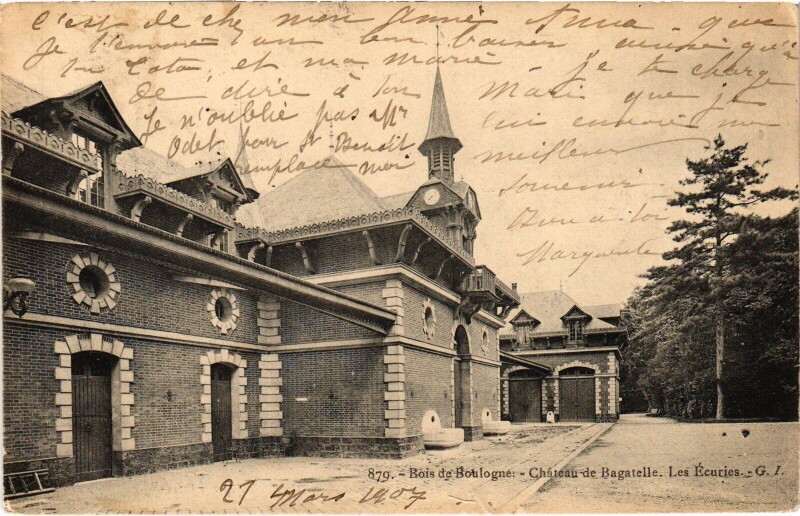 c'est de chez mon Anna que
Je t'envoie un bon baiser ainsi qu'à
ta Tata, et ma
de dire à ton
Je n'oublie pas
Odet pour St Benoit
remplace
Je te charge
Mari que je
lui envoie mon
meilleur
souvenir
Bien à toi
Marguerite
879. - Bois de Boulogne. - Château de Bagatelle. Les Écuries. - G. I.
27 Mars 1907